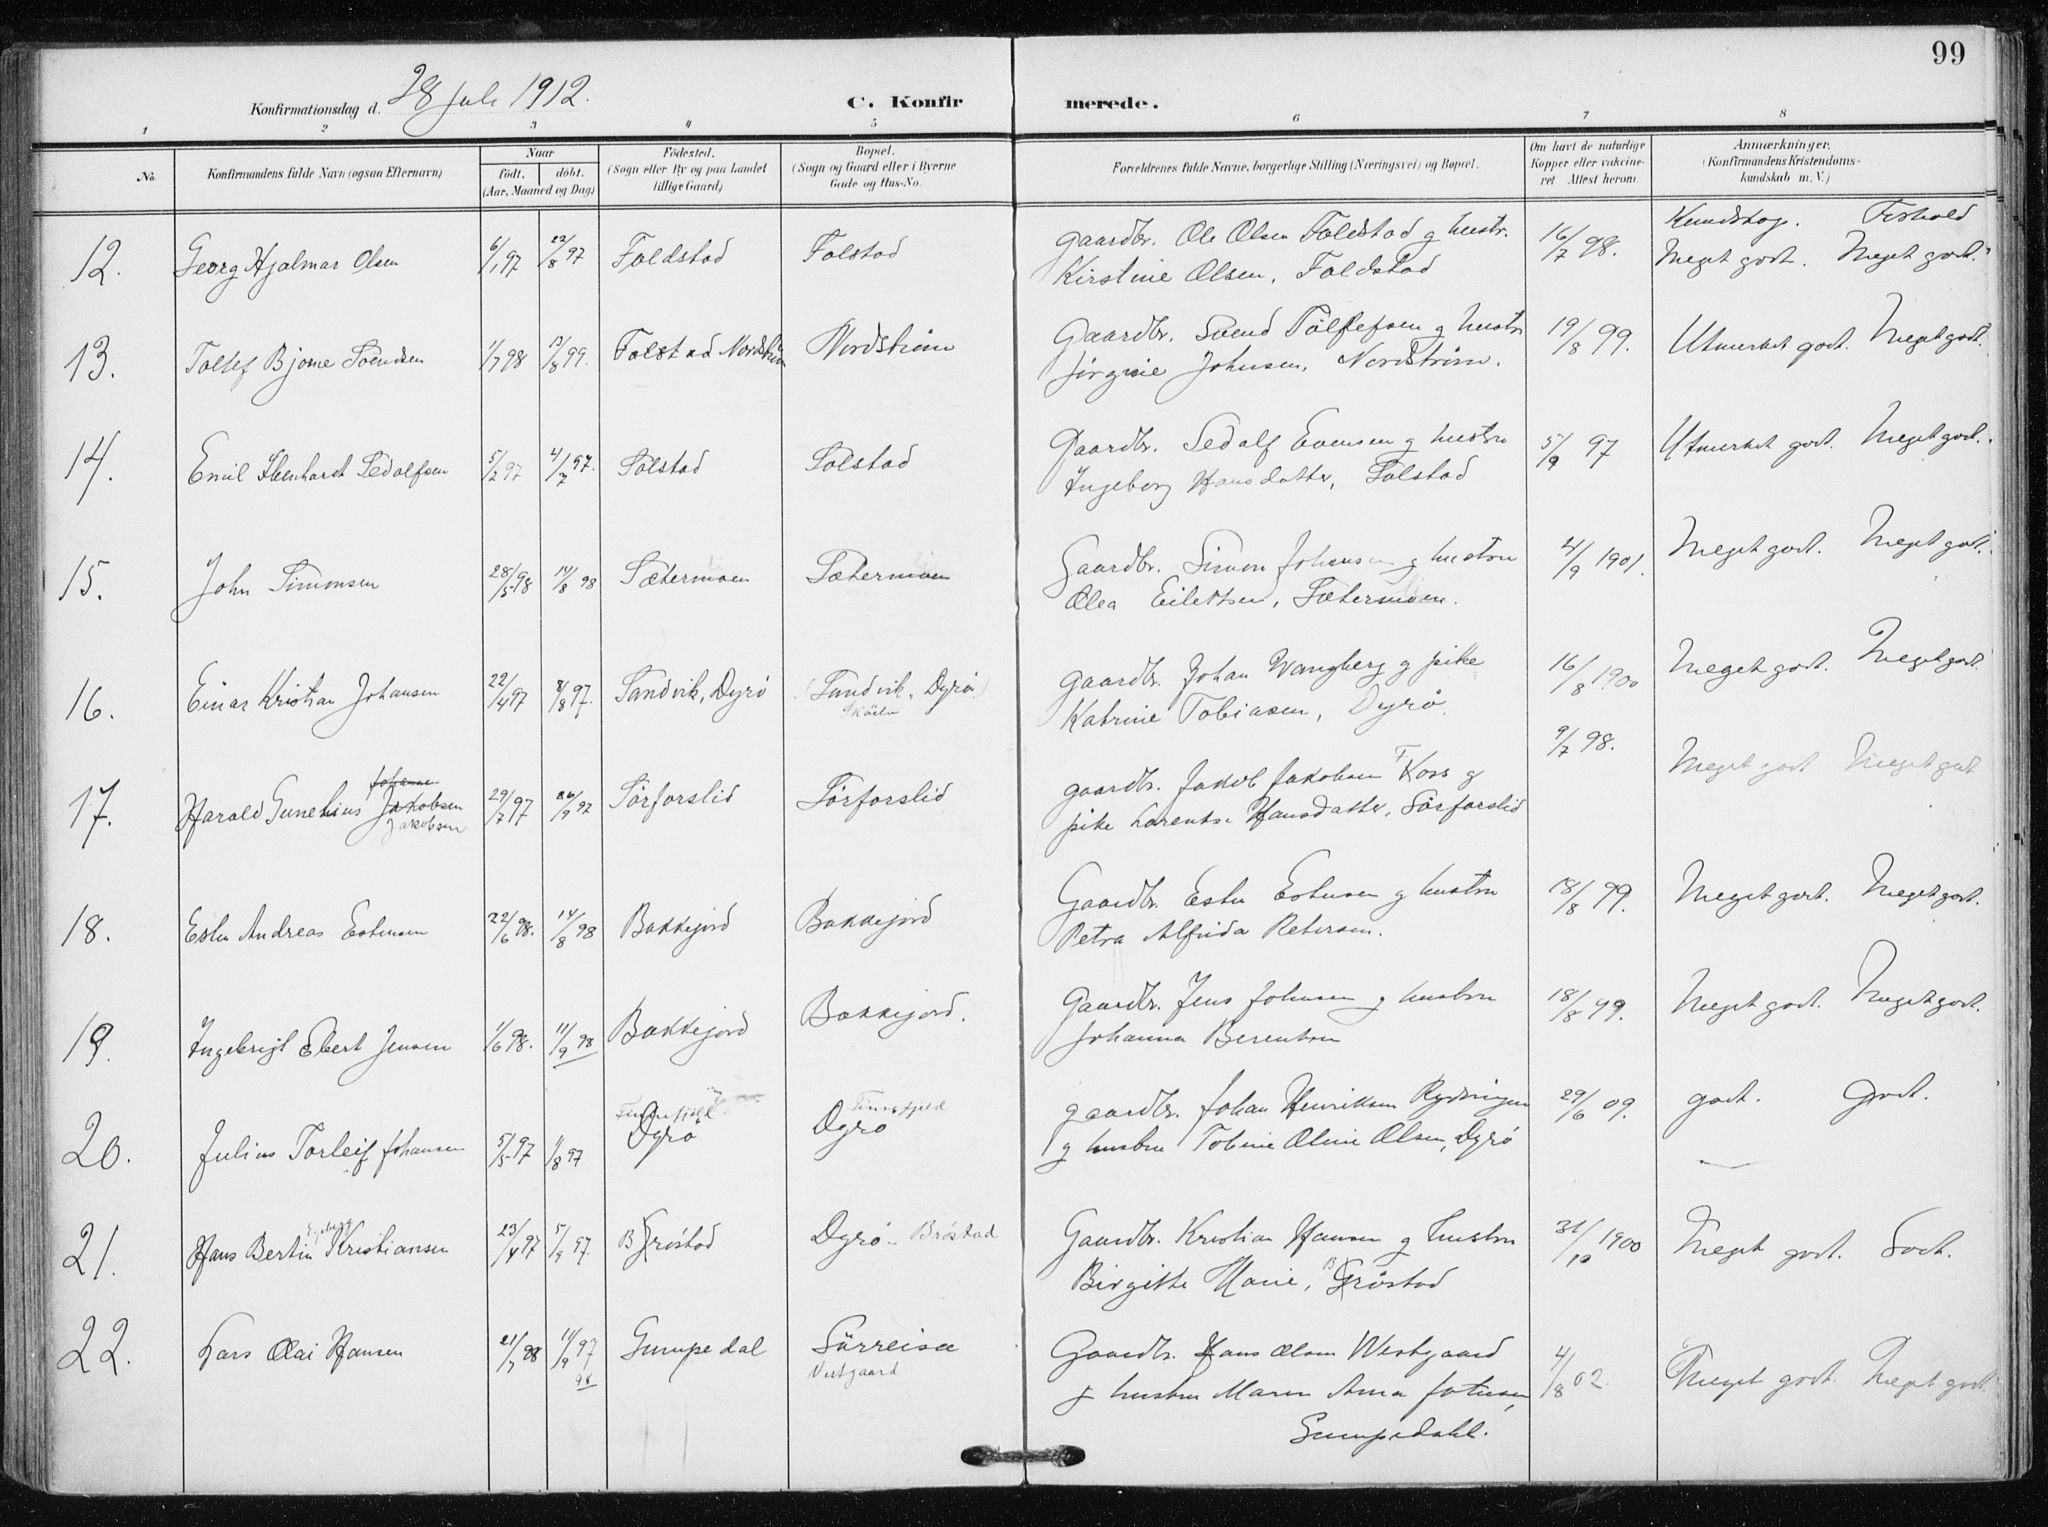 99
Konfirmationsdag d. 28 juli 1912.
C. Konfir merede.
1 2 3 4 5 6 7 8
No.
Konfirmandens fulde Navn (ogsaa Efternavn)
Naar
født. døbt.
(Aar, Maaned og Dag)
Fødested.
(Sogn eller By og paa Landet
tillige Gaard)
Bopæl.
(Sogn og Gaard eller i Byerne
Gade og Hus-No.
Forældrenes fulde Navne, borgerlige Stilling (Næringsvei) og Bopæl.
Om havt de naturlige
Kopper eller vakcine-
ret Attest herom.
Anmærkninger.
(Konfirmandens Kristendoms-
kundskab m. V.)
Kundskap. Forhold
12. Georg Hjalmar Olsen 6/1 97 22/8 97 Foldstad Folstad Gaardbr. Ole Olsen Foldstad g hustr. 16/7 98. Meget godt. Meget godt.
Kirstine Olsen, Foldstad
13. Tollef Bjarne Svendsen 1/7 98 13/8 99. Folstad Nordstrøm Nordstrøm Gaardbr. Svend Tollefsen g hustru 19/8 99. Utmerket godt. Meget godt.
Jørgine Johnsen, Nordstrøm.
14. Emil Edenhardt Sedolfsen 5/2 97 4/7 97. Solstad Solstad Gaardbr. Sedolf Evensen g hustru 5/9 97 Utmerket godt. Meget godt.
Ingeborg Hansdatter, Solstad
15. John Simonsen 28/5 98 14/8 98 Sætermoen Sætermoen Gaardbr. Simon Johansen g hustru 21/9 1901. Meget godt. Meget godt.
Olea Eilertsen, Sætermoen.
16. Einar Kristian Johansen 22/4 97 8/8 97. Sandvik, Dyrø (Sandvik, Dyrø) gaardbr. Johan Wangberg g pike 16/8 1900 Meget godt. Meget godt.
Katrine Tobiasen, Dyrø.
17. Harald Gunelius Jakobsen 29/7 97 26/9 97 Sørforslid Sørforslid gaardbr. Jakob Jakobsen Foss g 9/7 98. Meget godt Meget godt
Jakobsen
pike Lorentse Hansdatter, Sørforslid
18. Esten Andreas Estensen 22/6 98. 14/8 98 Bakkejord Bakkejord Gaardbr. Esten Estensen g hustru 18/8 99. Meget godt. Meget godt.
Petra Alfrida Petersen.
19. Ingebrigt Ebert Jensen 1/6 98. 11/9 98 Bakkejord Bakkejord. Gaardbr. Jens Johnsen g hustru 18/8 99. Meget godt. Meget godt.
Johanna Berentsen
Finnefjeld Finnefjeld
20. Julius Torleif Johansen 5/5 97 1/8 97 Dyrø Dyrø gaardbr. Johan Henriksen Rydningen 29/6 09. godt. Godt.
g hustru Tobine Oline Olsen, Dyrø
21. Hans Bertin Kristiansen 23/4 97 5/9 97. Brøstad Dyrø - Brøstad Gaardbr. Kristian Hansen g hustru 31/10 1900 Meget godt. Godt.
Birgitte Marie, Brøstad
22. Lars Olai Hansen 21/7 98 11/9 97 98 Gumpedal Sørreisa Gaardbr. Hans Olsen Westgaard 4/8 02. Meget godt. Meget godt.
Vestgaard
g hustru Maren Anna Johnsen,
Gumpedahl.